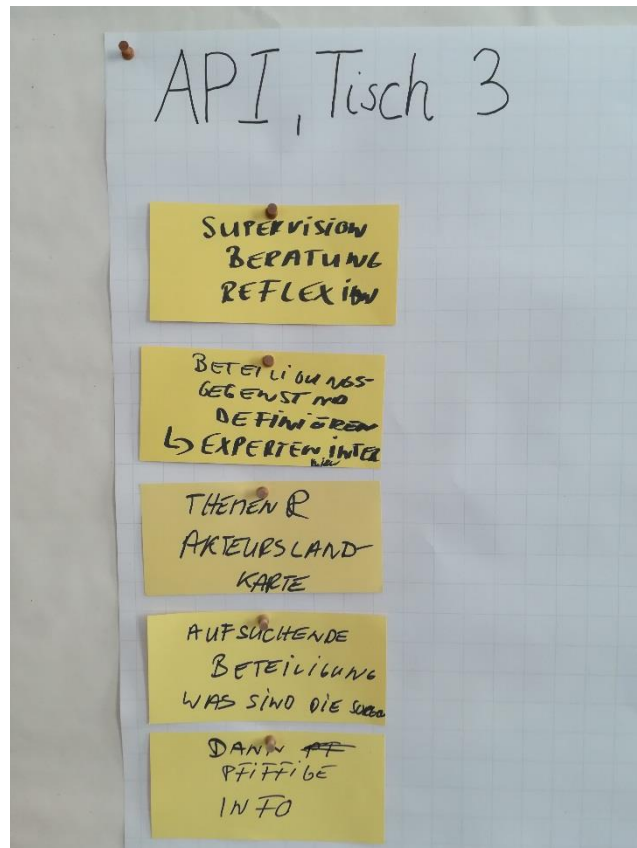 API, Tisch 3
SUPERVISION
BERATUNG
REFLEXION
BETEILIGUNGS-
GEGENSTND
DEFINIEREN
↳ EXPERTEN, INTER
THEMEN &
AKTEURSLAND-
KARTE
AUFSUCHENDE
BETEILIGUNG
WAS SIND DIE
DANN
PFIFFIGE
INFO